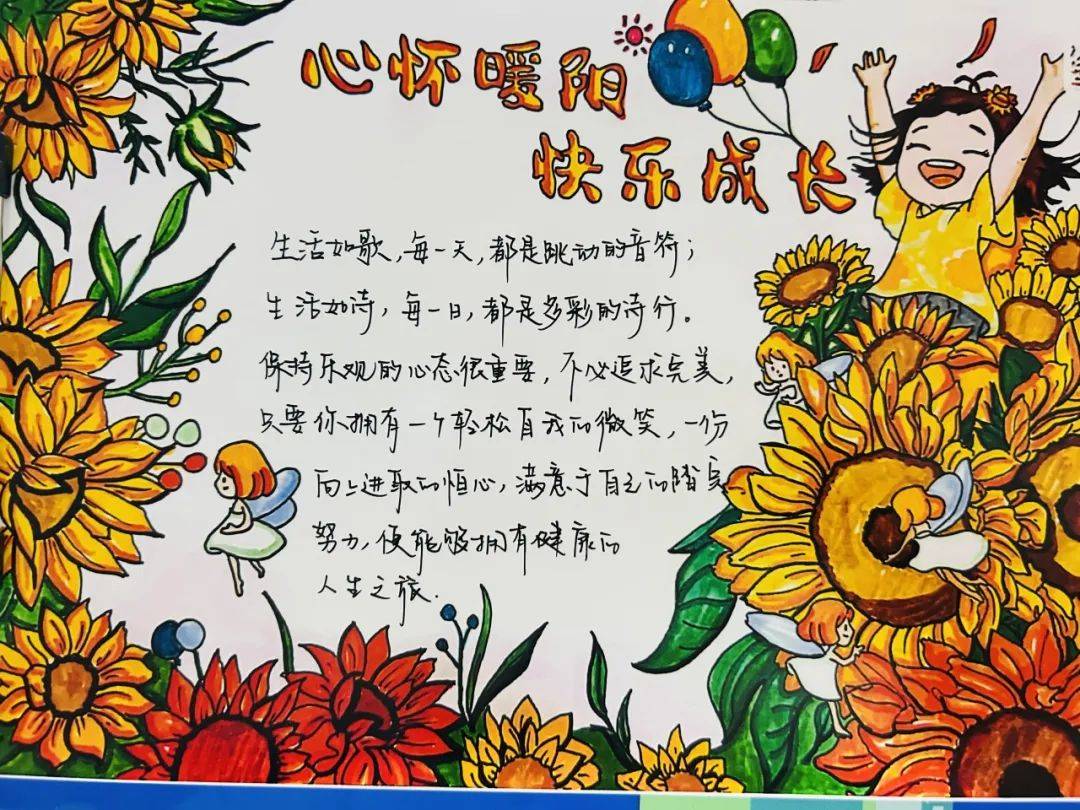 心怀暖阳
快乐成长
生活如歌,每一天,都是跳动的音符;
生活如诗,每一日,都是多彩的诗行。
保持乐观的心态很重要,不必追求完美,
只要你拥有一个轻松自我的微笑,一份
向上进取的恒心,满意于自己的踏实
努力,便能够拥有健康的
人生之旅.